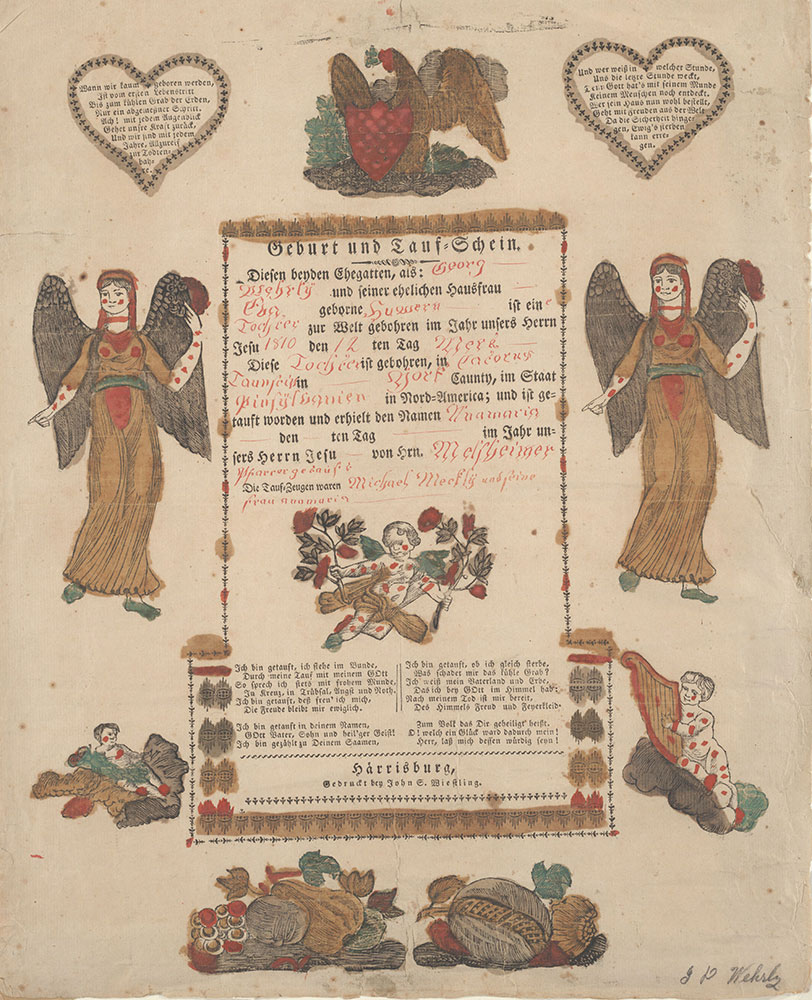 Wann wir kaum geboren werden,
Ist vom ersten Lebenstritt
Bis zum kühlen Grab der Erden,
Nur ein abgemeßner Schritt.
Ach! mit jedem Augenblick
Gehet unsre Kraft zurück,
Und wir sind mit jedem
Jahre, Allzureif
zur Todten-
bah-
re.
Und wer weiß in welcher Stunde,
Uns die letzte Stunde weckt,
Denn Gott hat's mit seinem Munde
Keinem Menschen noch entdeckt.
Wer sein Haus nun wohl bestellt,
Geht mit Freuden aus der Welt
Da die Sicherheit hinge-
gen, Ewig's sterben
kann erre-
gen.
Geburt und Tauf-Schein.
Diesen beyden Ehegatten, als: Georg
Wehrly und seiner ehelichen Hausfrau
Eva geborne ist eine
Tochter zur Welt gebohren im Jahr unsers Herrn
Jesu 1810 den 12 ten Tag Merz
Diese Tochter ist gebohren, in Cacorus
Taunschip in York Caunty, im Staat
Pinsylvanien in Nord-America; und ist ge-
tauft worden und erhielt den Namen Annamaria
den ten Tag im Jahr un-
sers Herrn Jesu von Hrn. Melsheimer
Pfarrer getauft
Die Tauf-Zeugen waren Michael Meckly und seine
frau Annamaria
Ich bin getauft, ich stehe im Bunde,
Durch meine Tauf mit meinem GOtt
So sprech ich stets mit frohem Munde,
In Kreuz, in Trübsal, Angst und Noth.
Ich bin getauft, deß freu' ich mich,
Die Freude bleibt mir ewiglich.
Ich bin getauft in deinem Namen,
GOtt Vater, Sohn und heil'ger Geist!
Ich bin gezählt zu Deinem Saamen,
Ich bin getauft, ob ich gleich sterbe,
Was schadet mir das kühle Grab?
Ich weiß mein Vaterland und Erbe,
Das ich bey GOtt im Himmel hab:
Nach meinem Tod ist mir bereit,
Des Himmels Freud und Feyerkleid.
Zum Volk das Dir geheiligt heißt.
O! welch ein Glück ward dadurch mein!
Herr, laß mich dessen würdig seyn!
Härrisburg,
Gedruckt bey John S. Wiestling.
Wehrly